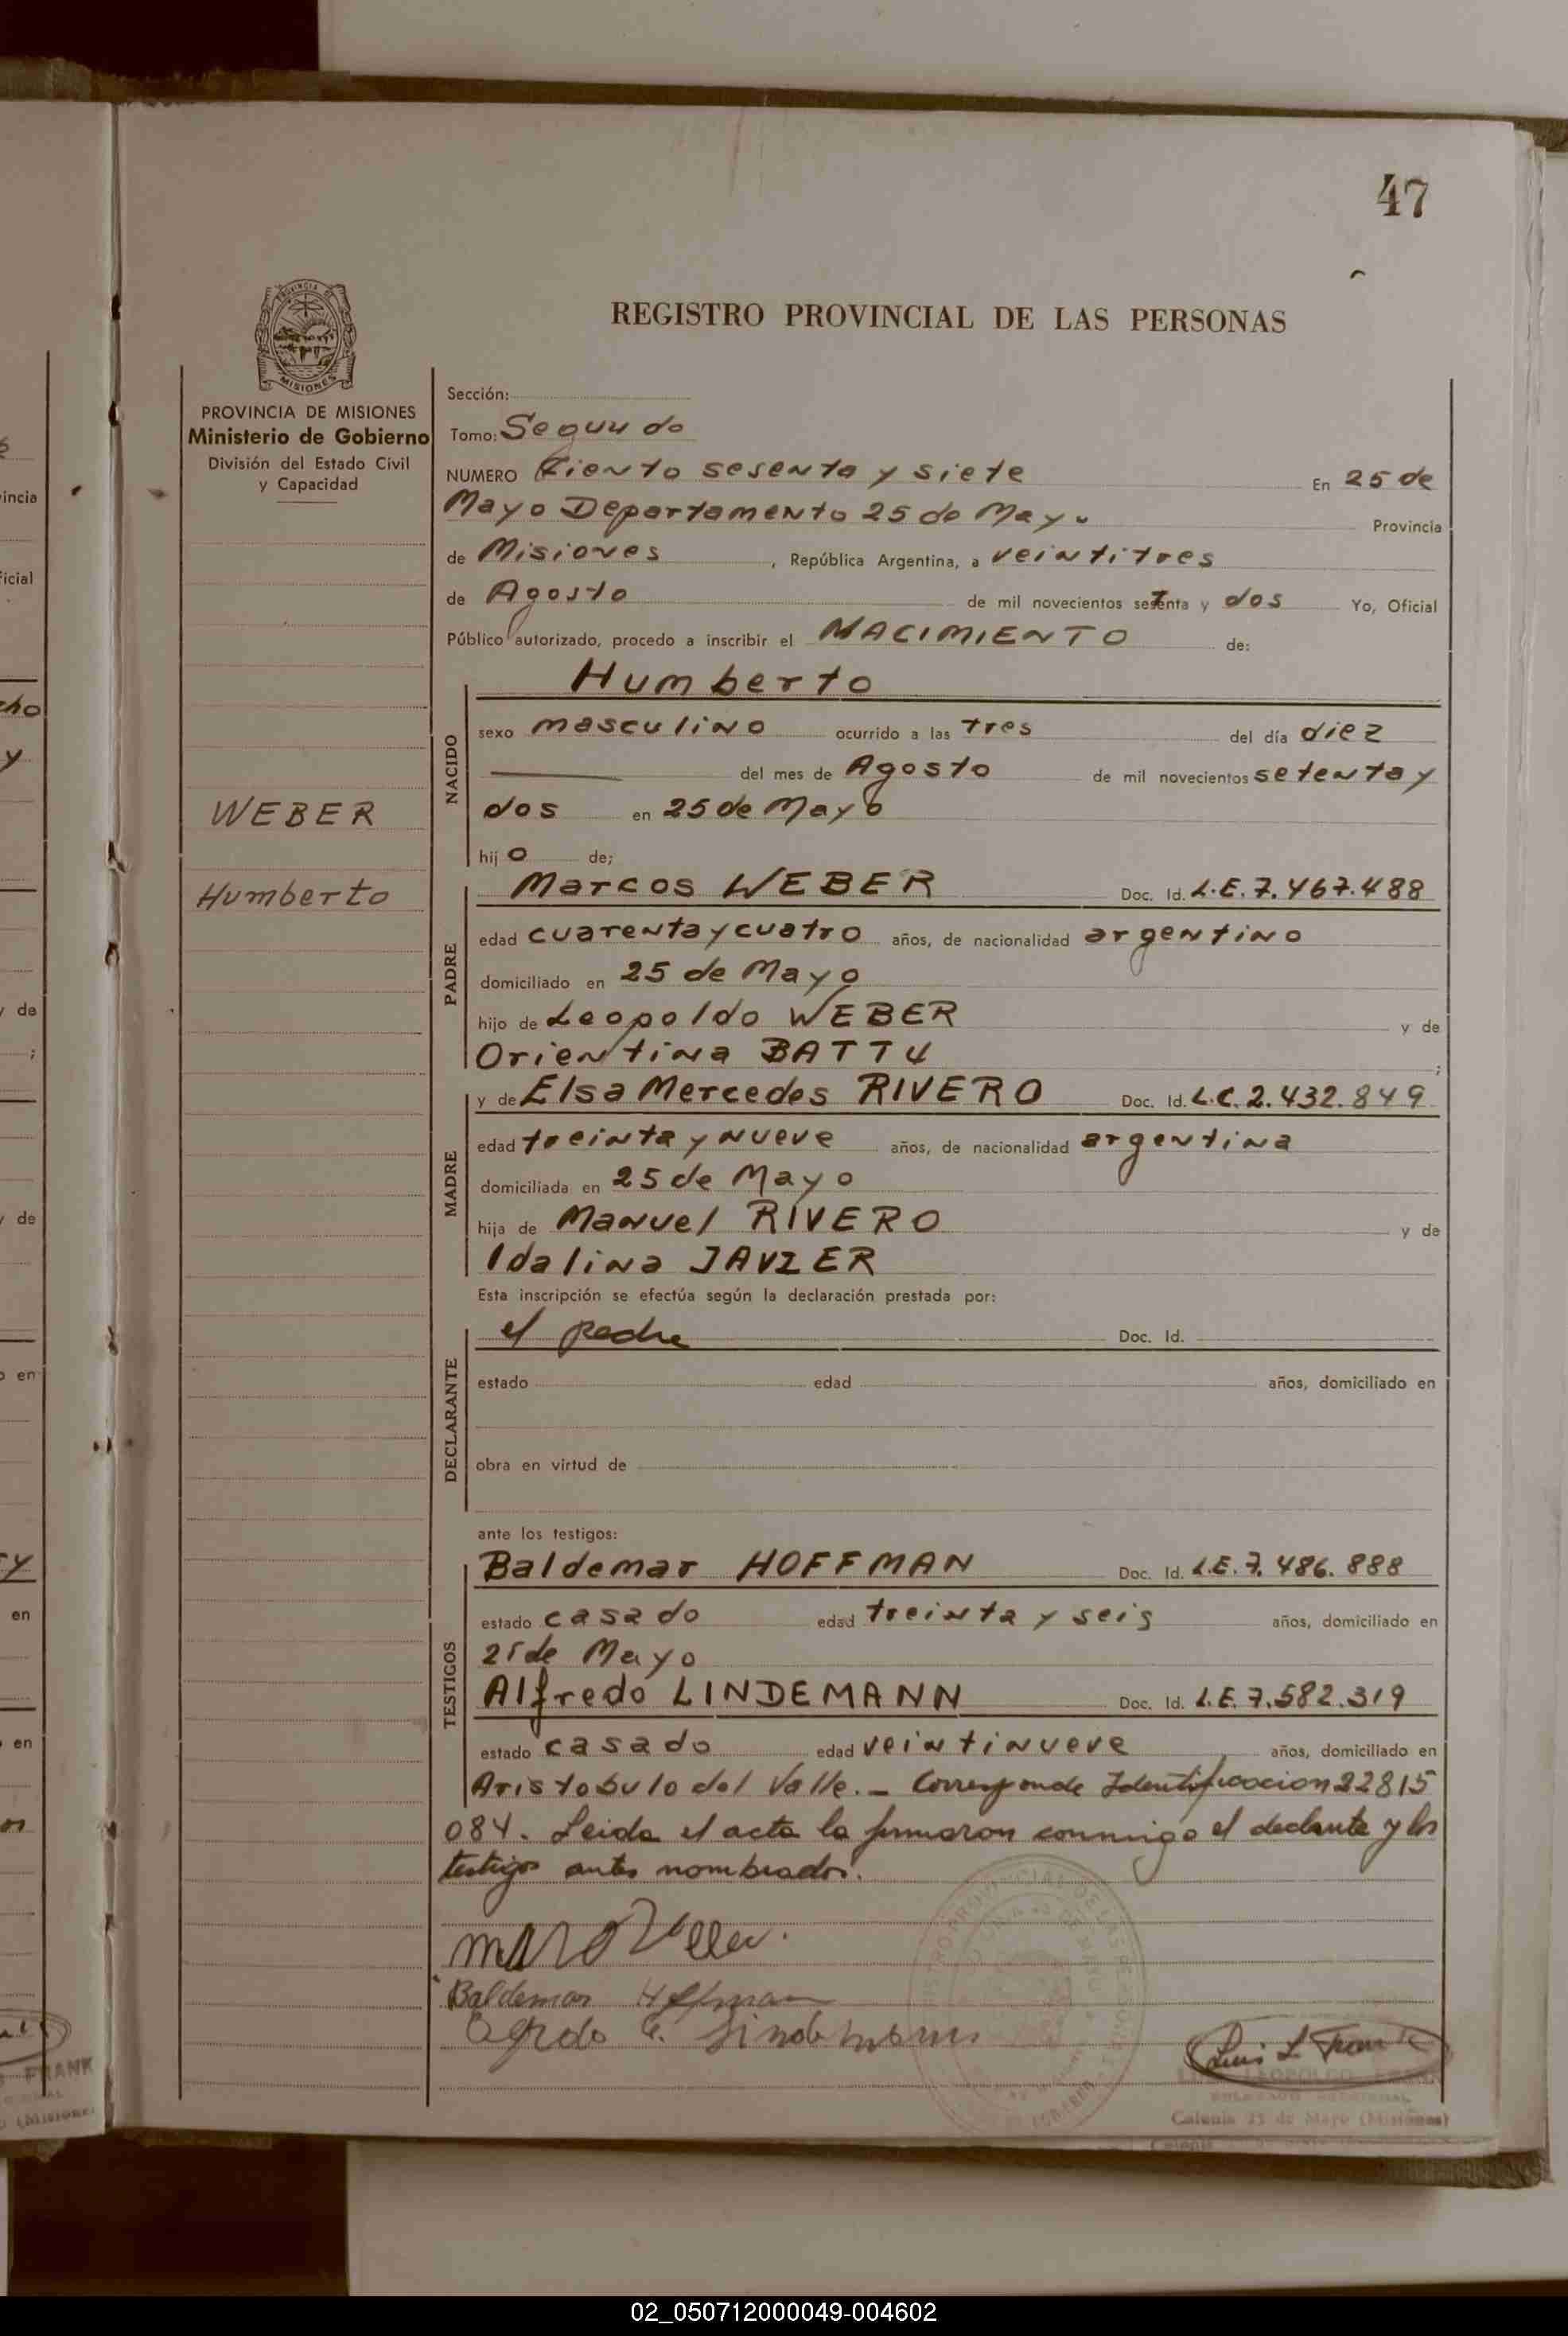 47
REGISTRO PROVINCIAL DE LAS PERSONAS
PROVINCIA DE MISIONES
Ministerio de Gobierno
División del Estado Civil
y Capacidad
WEBER
Humberto
Sección:
Tomo: Segundo
NUMERO Ciento sesenta y siete En 25 de
Mayo Departamento 25 de Mayo Provincia
de Misiones, República Argentina, a veintitres
de Agosto de mil novecientos setenta y dos Yo, Oficial
Público autorizado, procedo a inscribir el NACIMIENTO de:
Humberto
NACIDO
sexo masculino ocurrido a las tres del día diez
del mes de Agosto de mil novecientos setenta y
dos en 25 de Mayo
hijo de;
PADRE
Marcos WEBER Doc. Id. L.E. 7.467.488
edad cuarenta y cuatro años, de nacionalidad argentino
domiciliado en 25 de Mayo
hijo de Leopoldo WEBER y de
Orientina BATTU ;
MADRE
y de Elsa Mercedes RIVERO Doc. Id. L.C. 2.432.849
edad treinta y nueve años, de nacionalidad argentina
domiciliada en 25 de Mayo
hija de Manuel RIVERO y de
Idalina JAVIER
Esta inscripción se efectúa según la declaración prestada por:
DECLARANTE
el padre Doc. Id.
estado edad años, domiciliado en
obra en virtud de
ante los testigos:
TESTIGOS
Baldemar HOFFMAN Doc. Id. L.E. 7.486.888
estado casado edad treinta y seis años, domiciliado en
25 de Mayo
Alfredo LINDEMANN Doc. Id. L.E. 7.582.319
estado casado edad veintinueve años, domiciliado en
Aristobulo del Valle._ Corresponde Identificacion 22815
084. Leida el acta la firmaron conmigo el declante y los
testigos antes nombrados.
Baldemar Hoffman
Luis L Frank
Colonia 25 de Mayo (Misiones)
02_050712000049-004602